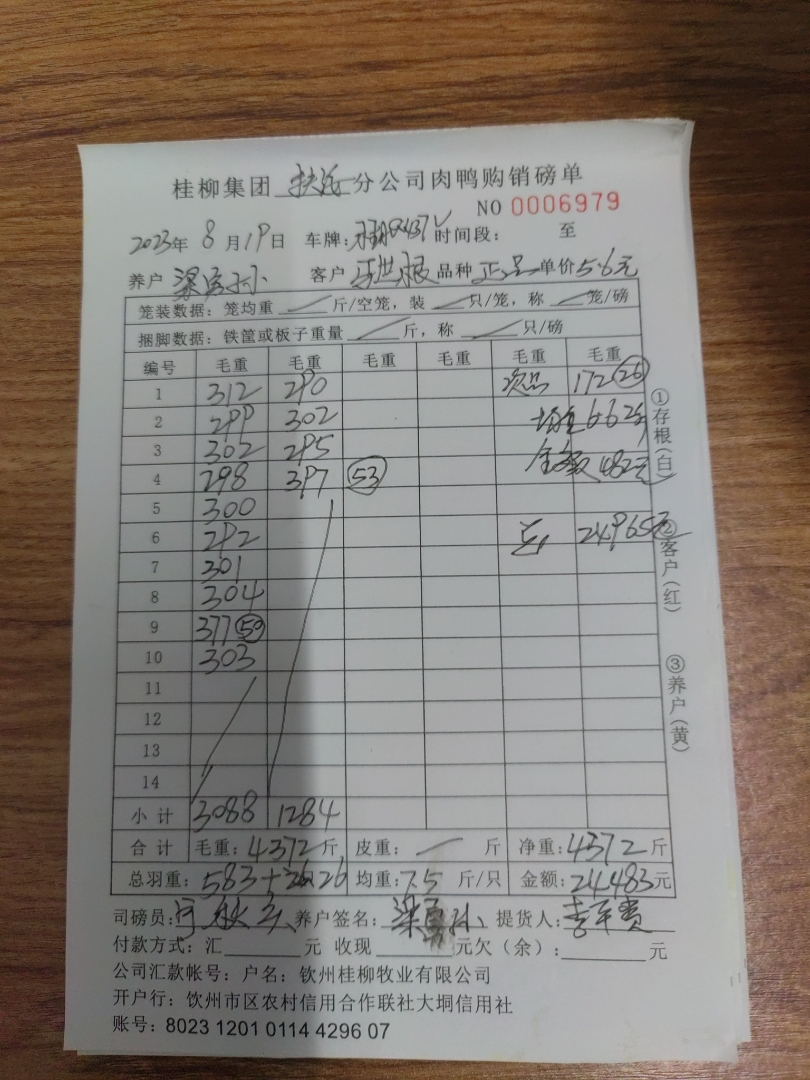 桂柳集团 扶绥 分公司肉鸭购销磅单
NO 0006979
2023年 8 月 19 日 车牌: 时间段: 至
养户 梁 孙 客户 马世根 品种 正品 单价 5.6元
笼装数据: 笼均重 斤/空笼, 装 只/笼, 称 笼/磅
捆脚数据: 铁筐或板子重量 斤, 称 只/磅
编号 毛重 毛重 毛重 毛重 毛重 毛重
1 312 290 次品 172 (26)
2 299 302 均重 6.62斤
3 302 295 金额 482元
4 298 397 (53)
5 300
6 292 总 24965元
7 301
8 304
9 377 (50)
10 303
11
12
13
14
小计 3088 1284
合计 毛重: 4372 斤 皮重: 斤 净重: 4372 斤
总羽重: 583+ 26 均重: 7.5 斤/只 金额: 24483 元
司磅员: 养户签名: 梁 孙 提货人: 李 贵
付款方式: 汇 元 收现 元欠(余): 元
公司汇款帐号: 户名: 钦州桂柳牧业有限公司
开户行: 饮州市区农村信用合作联社大垌信用社
账号: 8023 1201 0114 4296 07
①存根(白)
②客户(红)
③养户(黄)